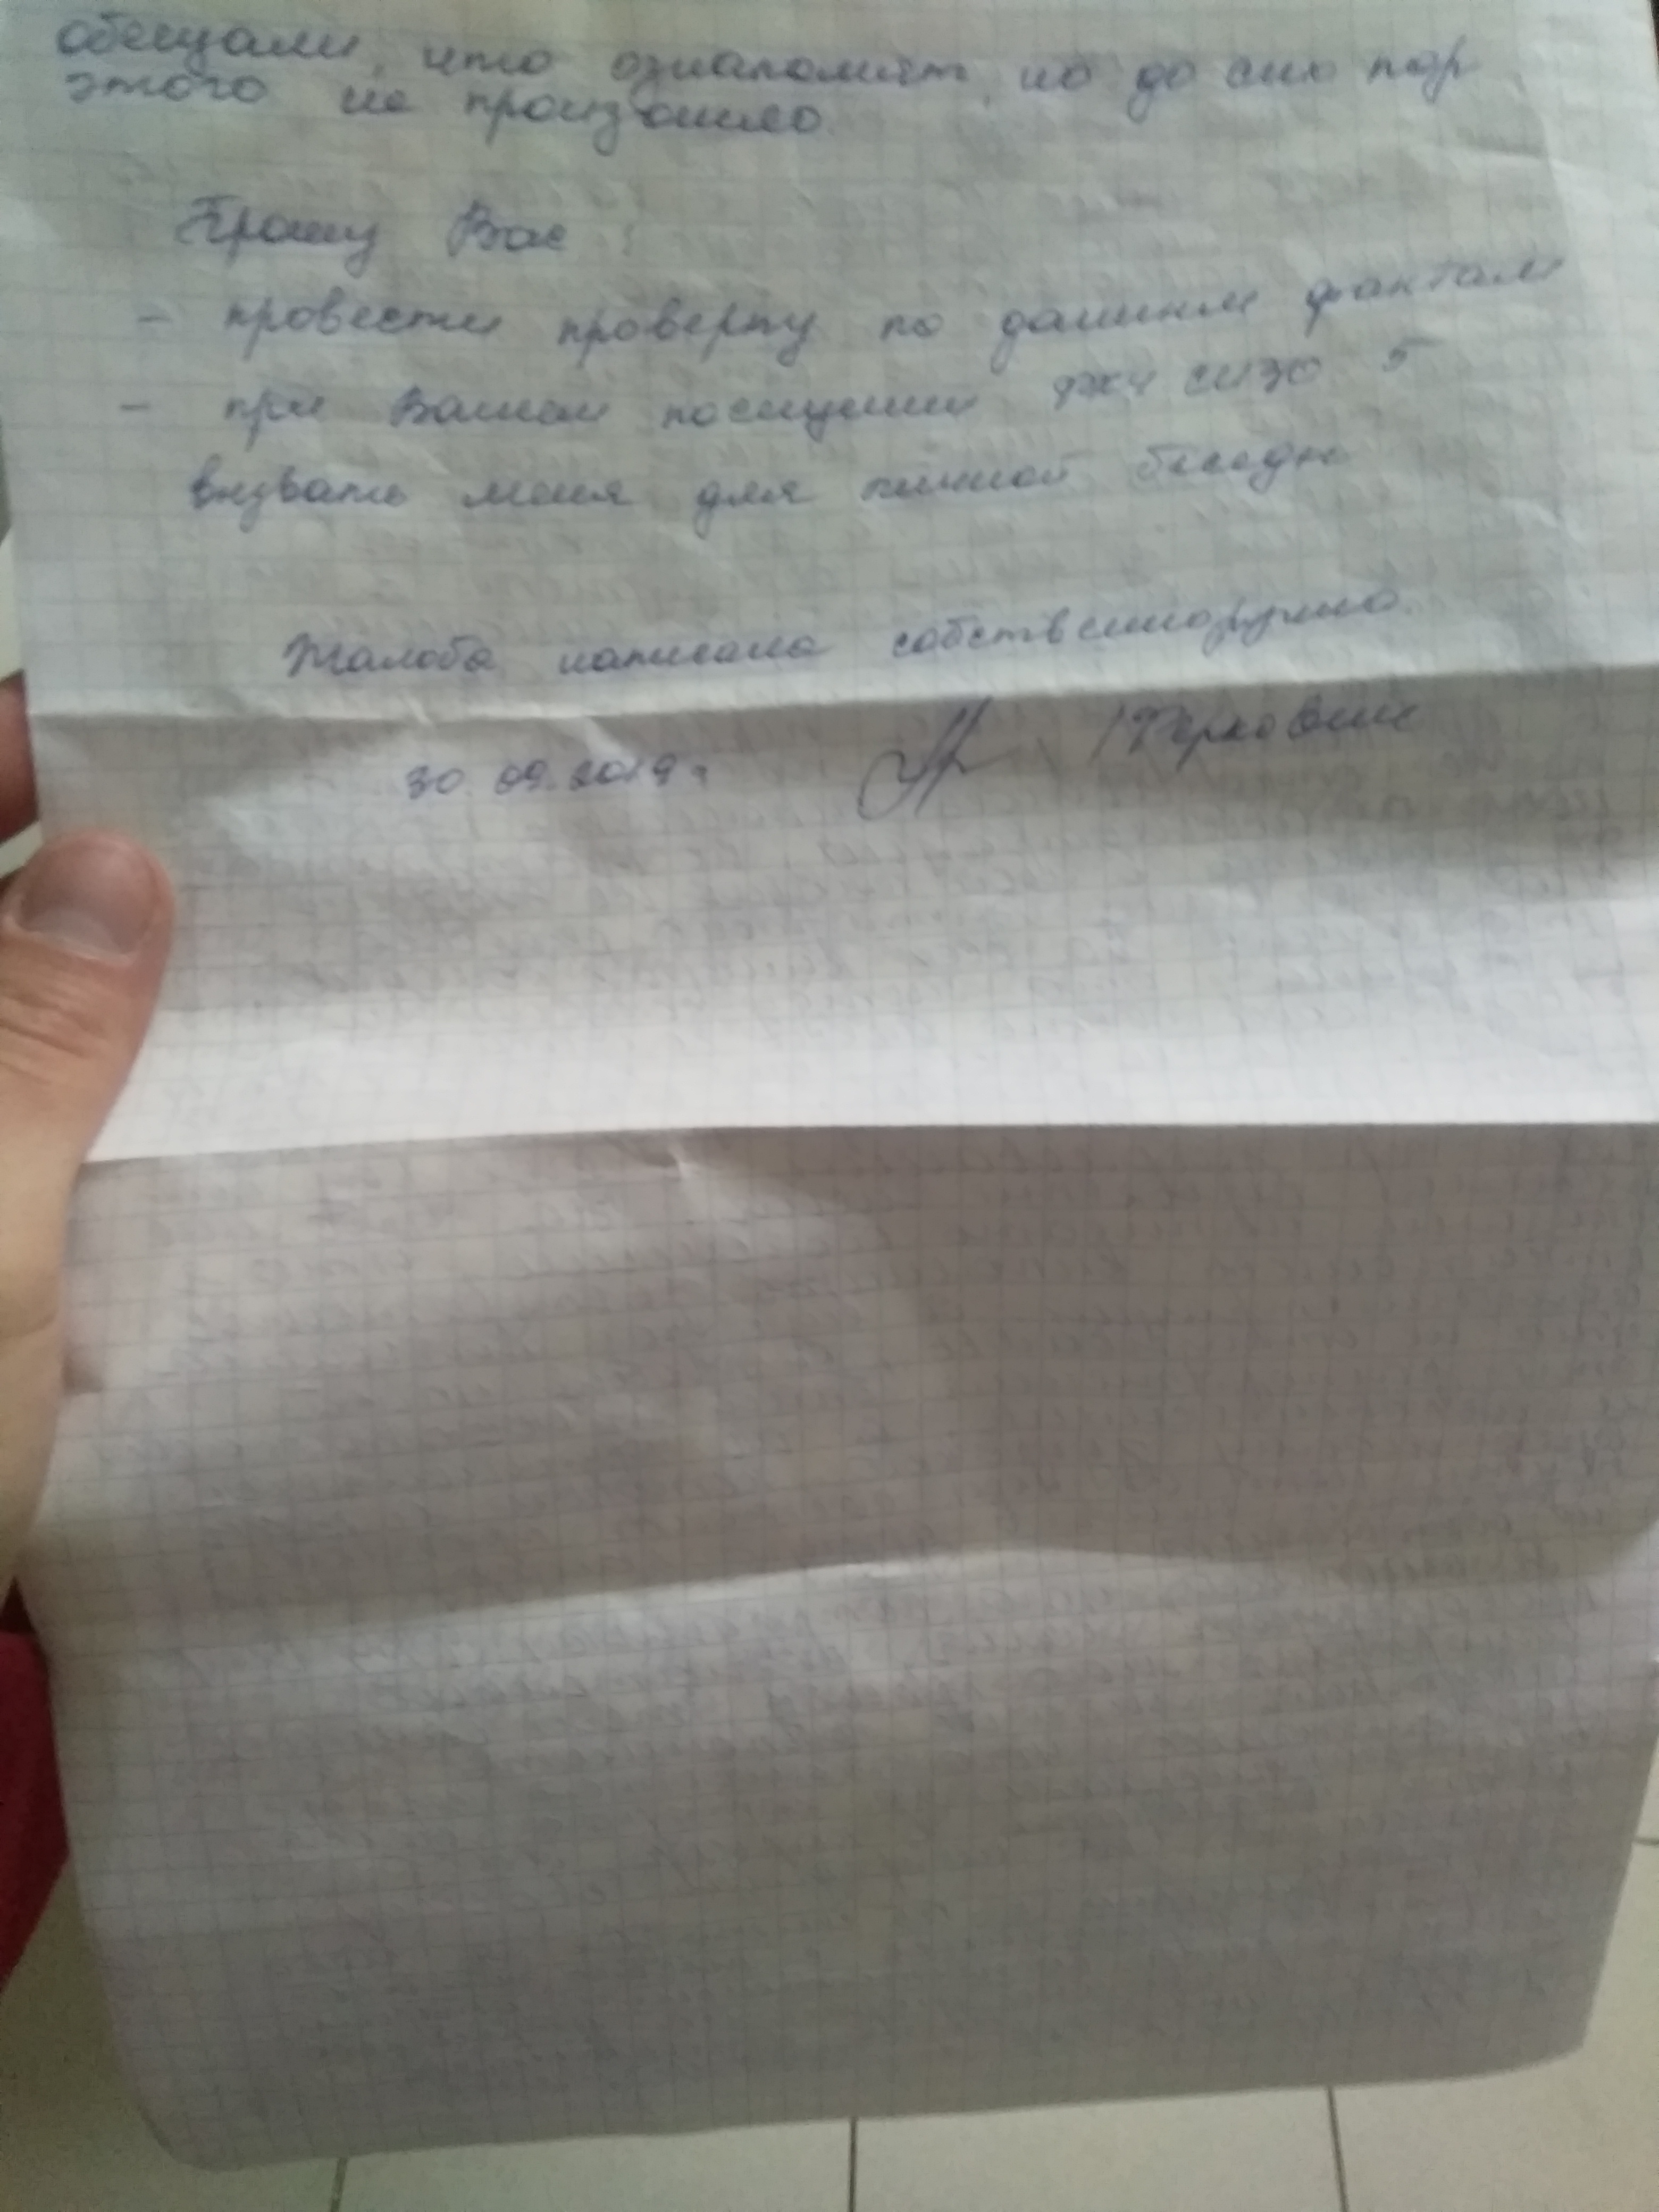 обещали, что ознакомят, но до сих пор
этого не произошло.
Прошу Вас:
- провести проверку по данным фактам
- при Вашем посещении ФКУ СИЗО 5
вызвать меня для личной беседы
Жалоба написана собственноручно.
30.09.2019г.